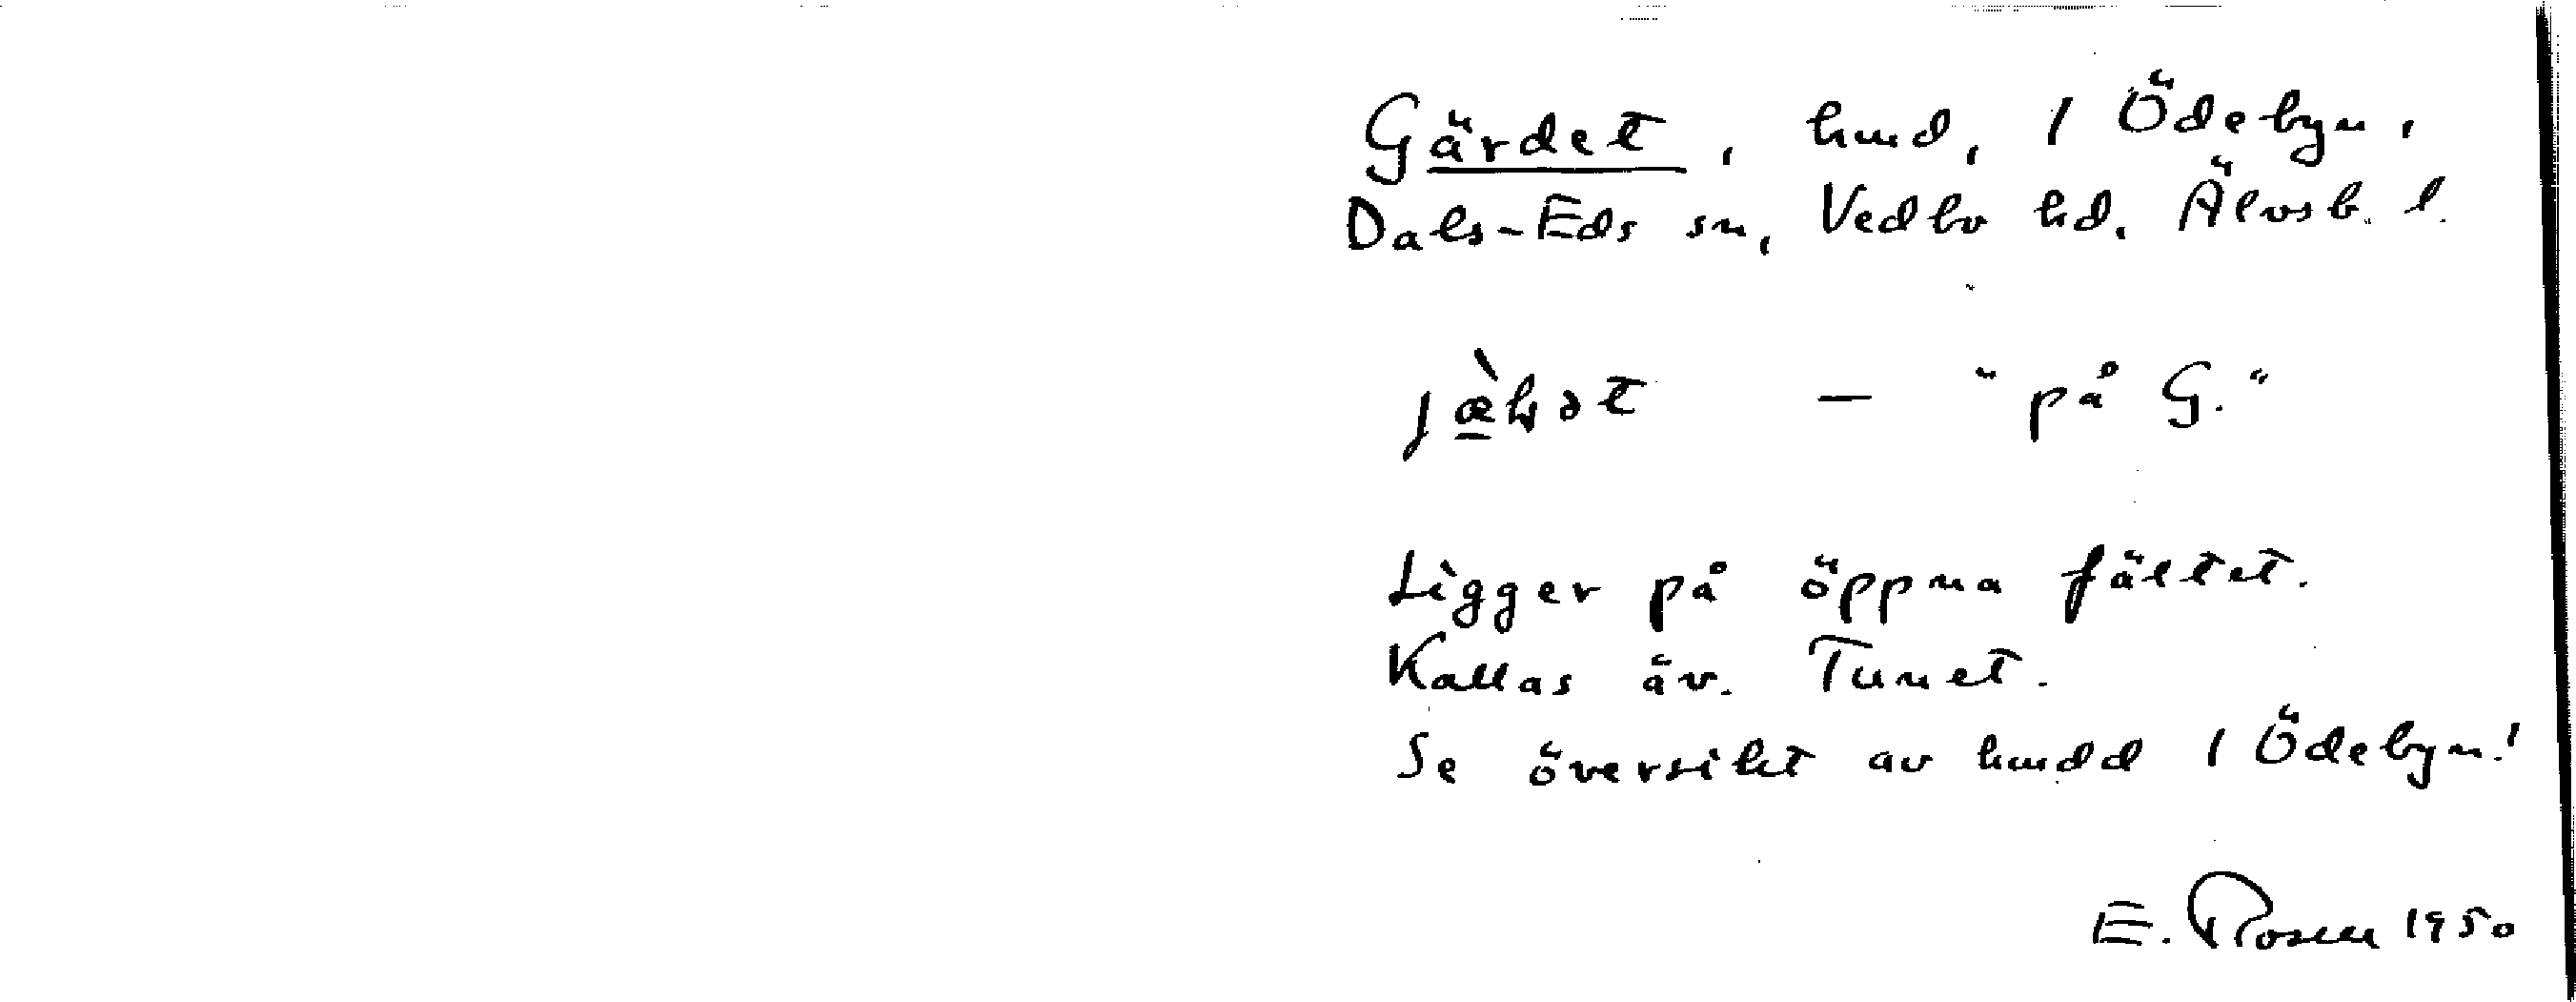 Gärdet, hmd, 1 Ödebyn,
Dals-Eds sn, Vedbo hd. Älvsb. l.
— "på G."
Ligger på öppna fältet.
Kallas äv. Tunet.
Se översikt av hmdd 1 Ödebyn!
E. Rosen 1950